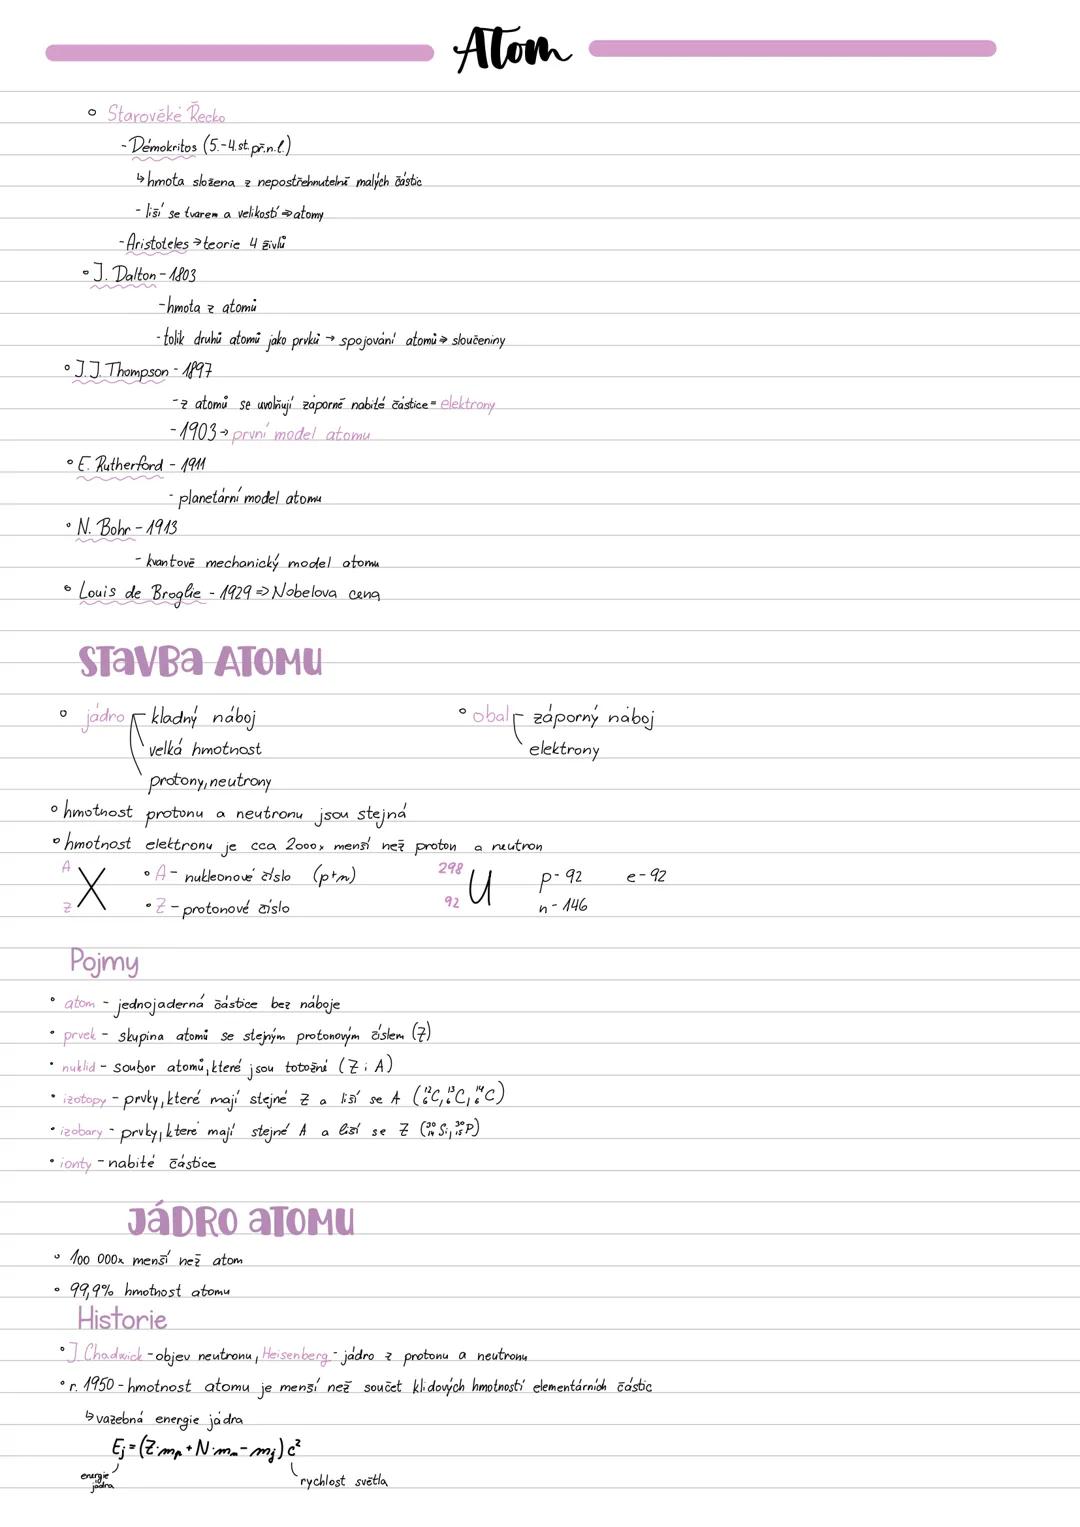 Atom
Starověké Řecko
- Démokritos (5.-4.st.př.n.l.)
↳ hmota složena z nepostřehnutelně malých částic
- liší se tvarem a velikostí ⇒ atomy
- Aristoteles → teorie 4 živlů
J. Dalton - 1803
- hmota z atomů
- tolik druhů atomů jako prvků → spojování atomů ⇒ sloučeniny
J.J. Thompson - 1897
- z atomů se uvolňují záporně nabité částice = elektrony
- 1903 → první model atomu
E. Rutherford - 1911
- planetární model atomu
N. Bohr - 1913
- kvantově mechanický model atomu
Louis de Broglie - 1929 ⇒ Nobelova cena
STAVBA ATOMU
jádro kladný náboj
velká hmotnost
protony, neutrony
obal záporný náboj
elektrony
hmotnost protonu a neutronu jsou stejná
hmotnost elektronu je cca 2000x menší než proton a neutron
A
X
Z
A - nukleonové číslo (p+n)
Z - protonové číslo
298
U
92
p - 92 e - 92
n - 146
Pojmy
atom - jednojaderná částice bez náboje
prvek - skupina atomů se stejným protonovým číslem (Z)
nuklid - soubor atomů, které jsou totožné (Z i A)
izotopy - prvky, které mají stejné Z a liší se A (¹²₆C, ¹³₆C, ¹⁴₆C)
izobary - prvky, které mají stejné A a liší se Z (³⁰₁₄Si, ³⁰₁₅P)
ionty - nabité částice
JÁDRO ATOMU
100 000x menší než atom
99,9% hmotnost atomu
Historie
J. Chadwick - objev neutronu, Heisenberg - jádro z protonu a neutronu
r. 1950 - hmotnost atomu je menší než součet klidových hmotností elementárních částic
↳ vazebná energie jádra
Ej = (Z·mp + N·mn - mj) c²
energie jádra
rychlost světla